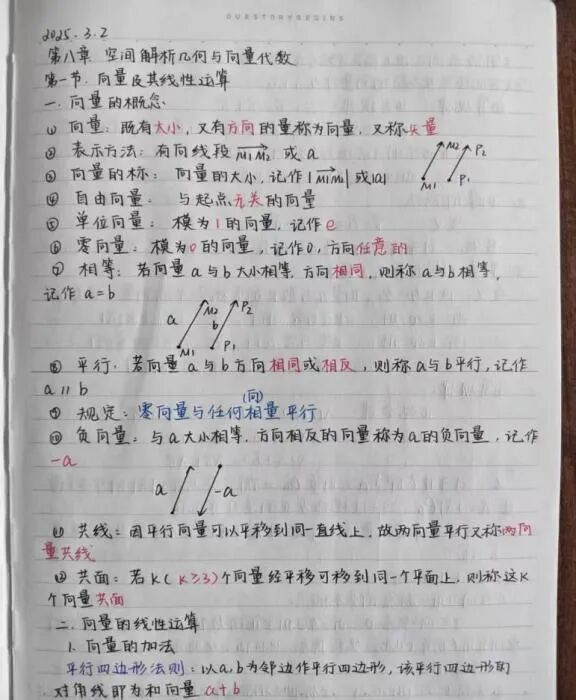 DUESTORYBEGINS
2025.3.2
第八章 空间解析几何与向量代数
第一节. 向量及其线性运算
一. 向量的概念
① 向量: 既有大小, 又有方向的量称为向量, 又称矢量
② 表示方法: 有向线段 M1M2 或 a
③ 向量的标: 向量的大小, 记作 |M1M2| 或 |a|
M2 P2
M1 P1
④ 自由向量: 与起点无关的向量
⑤ 单位向量: 模为1的向量, 记作e
⑥ 零向量: 模为0的向量, 记作0, 方向任意的
⑦ 相等: 若向量 a 与 b 大小相等 方向相同, 则称 a 与 b 相等,
记作 a=b
a M2 b P2
M1 P1
⑧ 平行: 若向量 a 与 b 方向相同或相反, 则称 a 与 b 平行, 记作
a // b
(向)
⑨ 规定: 零向量与任何相量平行
⑩ 负向量: 与 a 大小相等, 方向相反的向量称为 a 的负向量, 记作
-a
a -a
⑪ 共线: 因平行向量可以平移到同一直线上, 故两向量平行又称两向
量共线
⑫ 共面: 若 K ( K≥3 ) 个向量经平移可移到同一个平面上, 则称这K
个向量共面
二. 向量的线性运算
1. 向量的加法
平行四边形法则: 以 a, b 为邻边作平行四边形, 该平行四边形的
对角线即为和向量 a+b